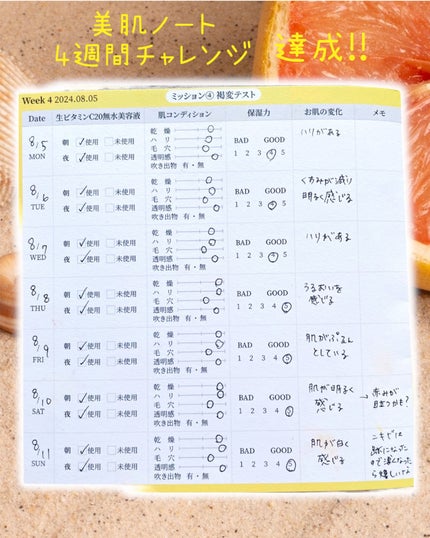 美肌ノート
4週間チャレンジ 達成!!
Week 4 2024.08.05
ミッション④ 褐変テスト
Date 生ビタミンC20無水美容液 肌コンディション 保湿力 お肌の変化 メモ
8/5
MON
朝 ✓使用 □未使用
夜 ✓使用 □未使用
乾燥
ハリ
毛穴
透明感
吹き出物 有・無
BAD GOOD
1 2 3 4 5
ハリがある
8/6
TUE
朝 ✓使用 □未使用
夜 ✓使用 □未使用
乾燥
ハリ
毛穴
透明感
吹き出物 有・無
BAD GOOD
1 2 3 4 5
くすみが減り
明るく感じる
8/7
WED
朝 ✓使用 □未使用
夜 ✓使用 □未使用
乾燥
ハリ
毛穴
透明感
吹き出物 有・無
BAD GOOD
1 2 3 4 5
ハリがある
8/8
THU
朝 ✓使用 □未使用
夜 ✓使用 □未使用
乾燥
ハリ
毛穴
透明感
吹き出物 有・無
BAD GOOD
1 2 3 4 5
うるおいを
感じる
8/9
FRI
朝 ✓使用 □未使用
夜 ✓使用 □未使用
乾燥
ハリ
毛穴
透明感
吹き出物 有・無
BAD GOOD
1 2 3 4 5
肌がぷるん
としている
8/10
SAT
朝 ✓使用 □未使用
夜 ✓使用 □未使用
乾燥
ハリ
毛穴
透明感
吹き出物 有・無
BAD GOOD
1 2 3 4 5
肌が明るく
感じる
→ 赤みが
目立つかも?
8/11
SUN
朝 ✓使用 □未使用
夜 ✓使用 □未使用
乾燥
ハリ
毛穴
透明感
吹き出物 有・無
BAD GOOD
1 2 3 4 5
肌が白く
感じる
ので薄くなった
ら嬉しいな